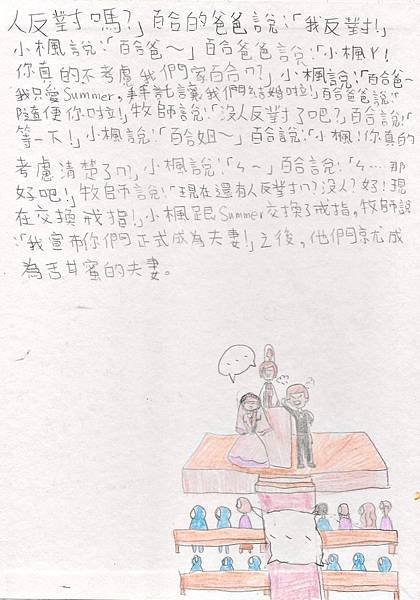 人反對嗎?」百合的爸爸說:「我反對!」
小楓說:「百合爸~」百合爸爸說:「小楓ㄚ!
你真的不考慮我們家百合ㄇ?」小楓說:「百合爸~
我只愛Summer,拜託讓我們結婚啦!」百合爸說:「
隨便你啦!」牧師說:「沒人反對了吧?」百合說:「
等一下!」小楓說:「百合姐~」百合說:「小楓!你真的
考慮清楚了ㄇ」小楓說:「ㄣ~」百合說:「ㄣ...那
好吧!」牧師說:「現在還有人反對ㄇ?沒人?好!現
在交換戒指!」小楓跟Summer交換了戒指,牧師說
:「我宣布你們正式成為夫妻!」之後,他們就成
為甜蜜的夫妻。